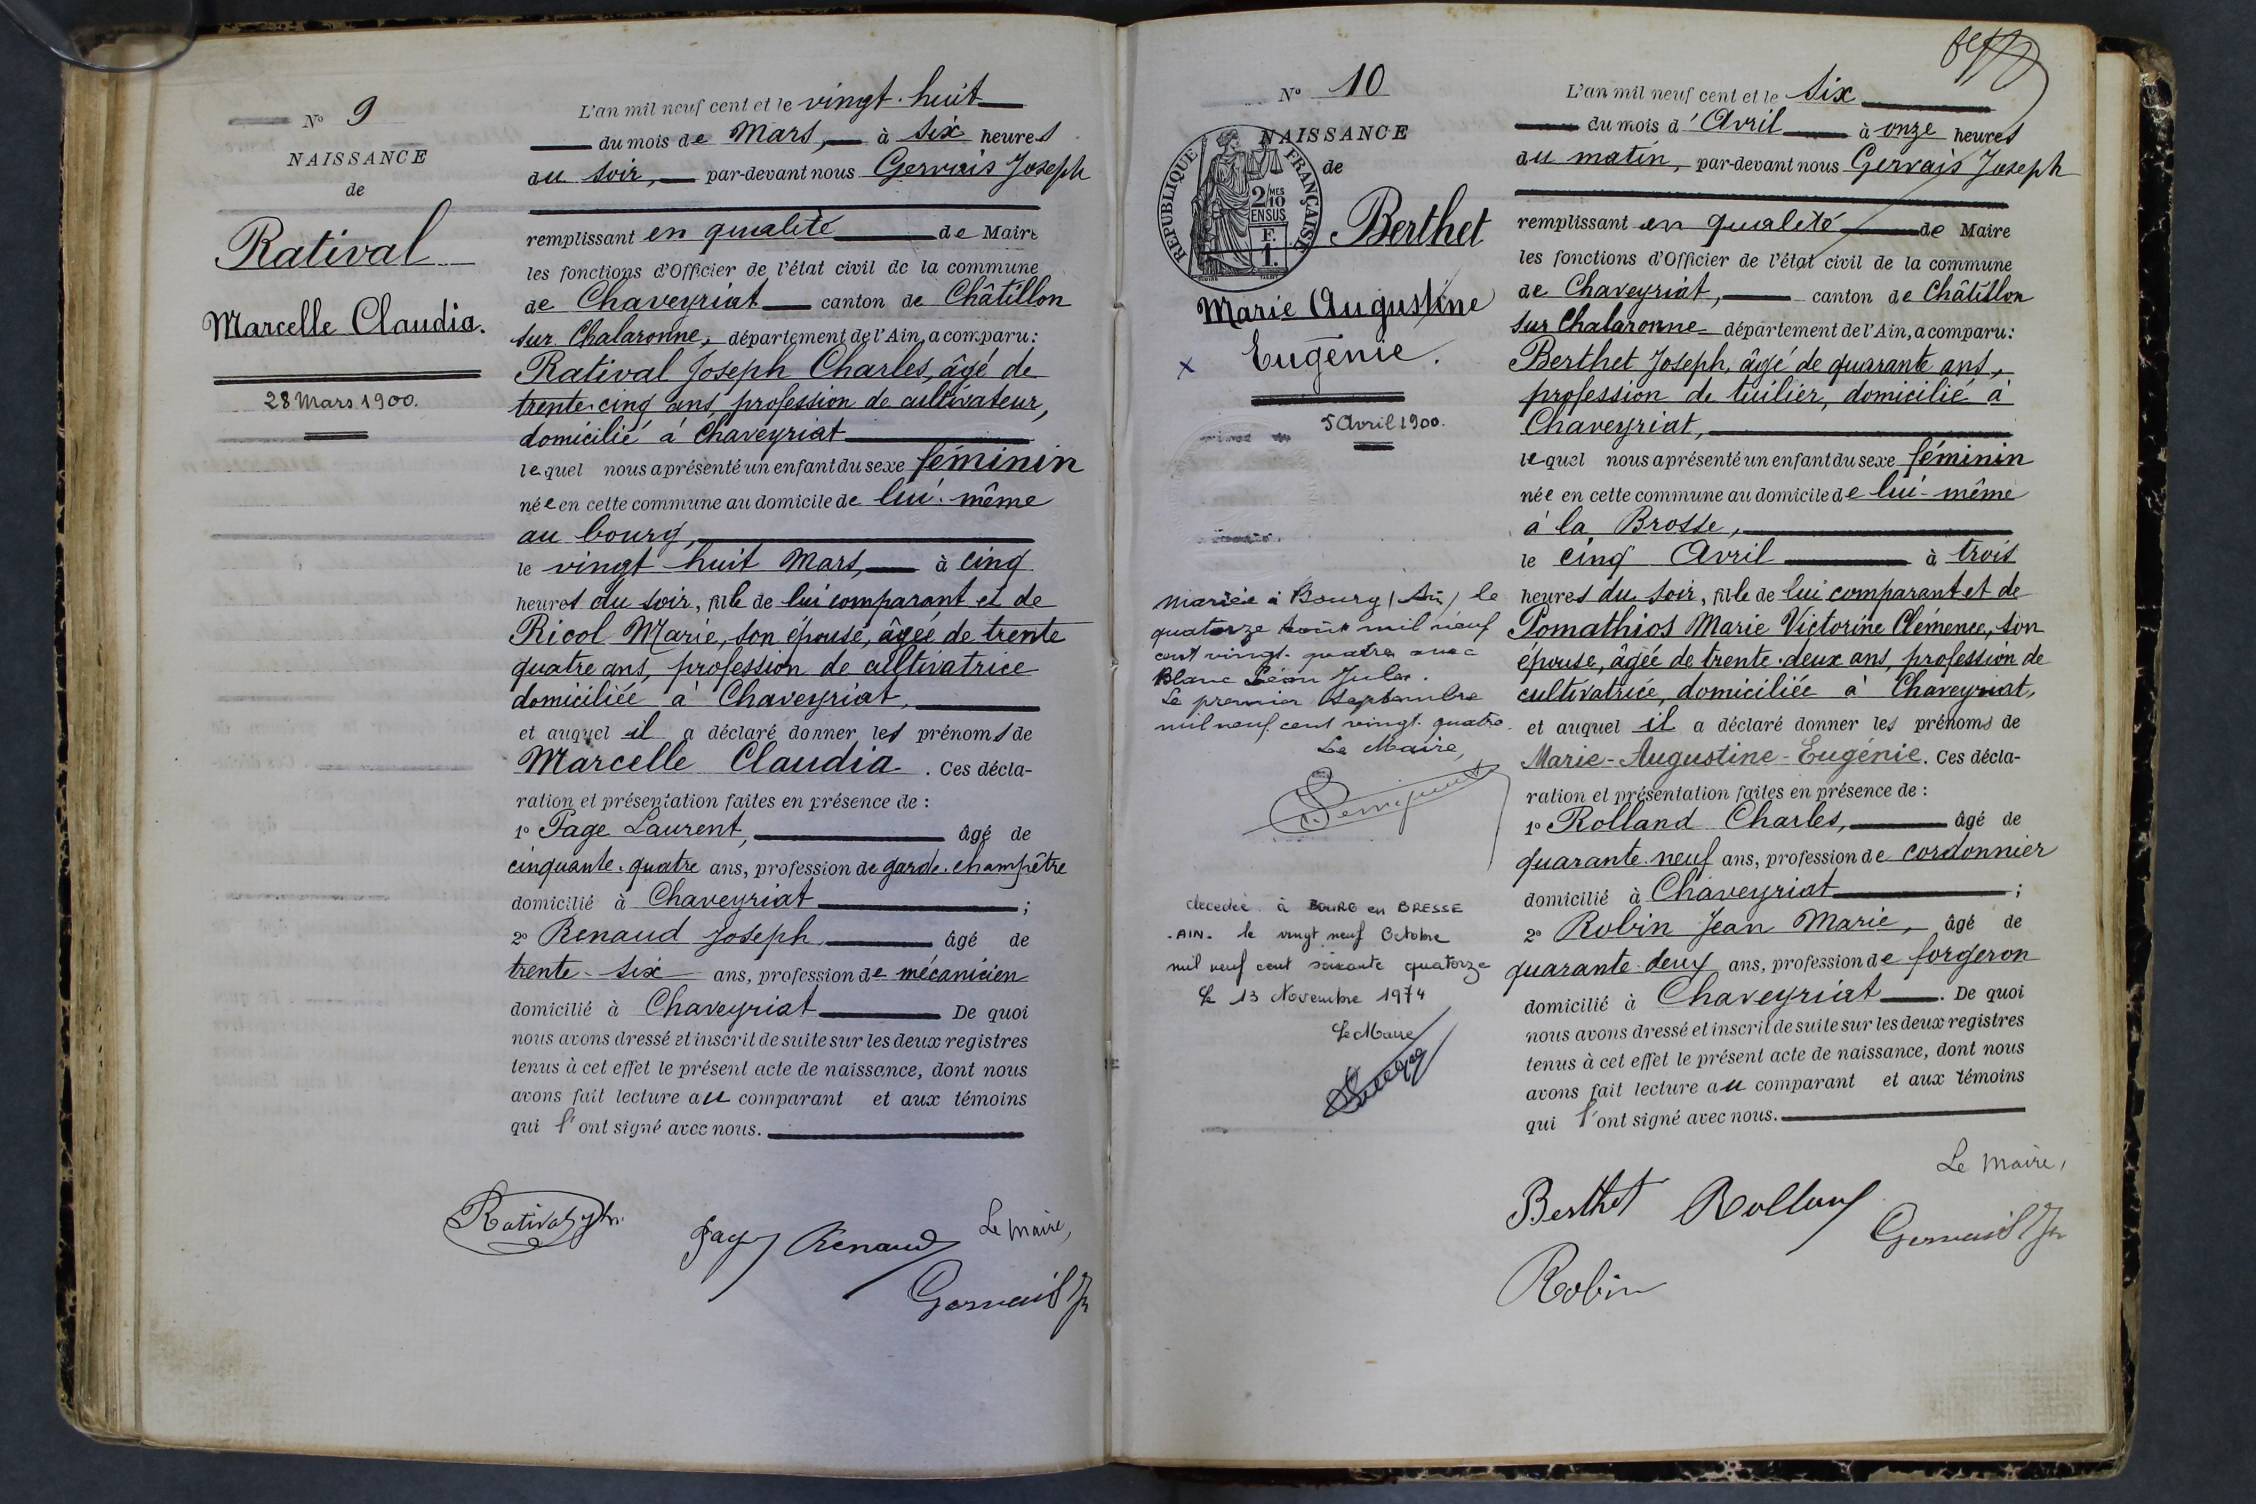 N° 9
NAISSANCE
de
Ratival
Marcelle Claudia.
28 Mars 1900.
L'an mil neuf cent et le vingt-huit
du mois de Mars, à six heures
du soir, par-devant nous Gervais Joseph
remplissant en qualité de Maire
les fonctions d'Officier de l'état civil de la commune
de Chaveyriat canton de Châtillon
sur Chalaronne, département de l'Ain, a comparu:
Ratival Joseph Charles, âgé de
trente-cinq ans, profession de cultivateur,
domicilié à Chaveyriat
lequel nous a présenté un enfant du sexe féminin
née en cette commune au domicile de lui-même
au bourg,
le vingt-huit Mars, à cinq
heures du soir, fille de lui comparant et de
Ricol Marie, son épouse, âgée de trente
quatre ans, profession de cultivatrice
domiciliée à Chaveyriat,
et auquel il a déclaré donner les prénoms de
Marcelle Claudia. Ces décla-
ration et présentation faites en présence de :
1° Page Laurent, âgé de
cinquante-quatre ans, profession de garde-champêtre
domicilié à Chaveyriat ;
2° Renaud Joseph, âgé de
trente-six ans, profession de mécanicien
domicilié à Chaveyriat De quoi
nous avons dressé et inscrit de suite sur les deux registres
tenus à cet effet le présent acte de naissance, dont nous
avons fait lecture au comparant et aux témoins
qui l'ont signé avec nous.
Le Maire,
Ratival
Page Renaud
Gervais
N° 10
NAISSANCE
de
REPUBLIQUE FRANÇAISE
2/10 MES
EN SUS
F.
1.
Berthet
Marie Augustine
Eugénie.
x
5 Avril 1900.
Mariée à Bourg (Ain) le
quatorze Août mil neuf
cent vingt-quatre avec
Blanc Léon Jules.
Le premier Septembre
mil neuf cent vingt-quatre.
Le Maire,
décédée à BOURG en BRESSE
.AIN. le vingt neuf Octobre
mil neuf cent soixante quatorze
Le 13 Novembre 1974
Le Maire
L'an mil neuf cent et le six
du mois d'Avril à onze heures
du matin, par-devant nous Gervais Joseph
remplissant en qualité de Maire
les fonctions d'Officier de l'état civil de la commune
de Chaveyriat, canton de Châtillon
sur Chalaronne département de l'Ain, a comparu:
Berthet Joseph, âgé de quarante ans,
profession de tuilier, domicilié à
Chaveyriat,
lequel nous a présenté un enfant du sexe féminin
née en cette commune au domicile de lui-même
à la Brosse,
le cinq Avril à trois
heures du soir, fille de lui comparant et de
Pomathios Marie Victorine Clémence, son
épouse, âgée de trente-deux ans, profession de
cultivatrice, domiciliée à Chaveyriat,
et auquel il a déclaré donner les prénoms de
Marie-Augustine-Eugénie. Ces décla-
ration et présentation faites en présence de :
1° Rolland Charles, âgé de
quarante-neuf ans, profession de cordonnier
domicilié à Chaveyriat ;
2° Robin Jean Marie, âgé de
quarante-deux ans, profession de forgeron
domicilié à Chaveyriat. De quoi
nous avons dressé et inscrit de suite sur les deux registres
tenus à cet effet le présent acte de naissance, dont nous
avons fait lecture au comparant et aux témoins
qui l'ont signé avec nous.
Le Maire,
Berthet Rolland
Gervais
Robin